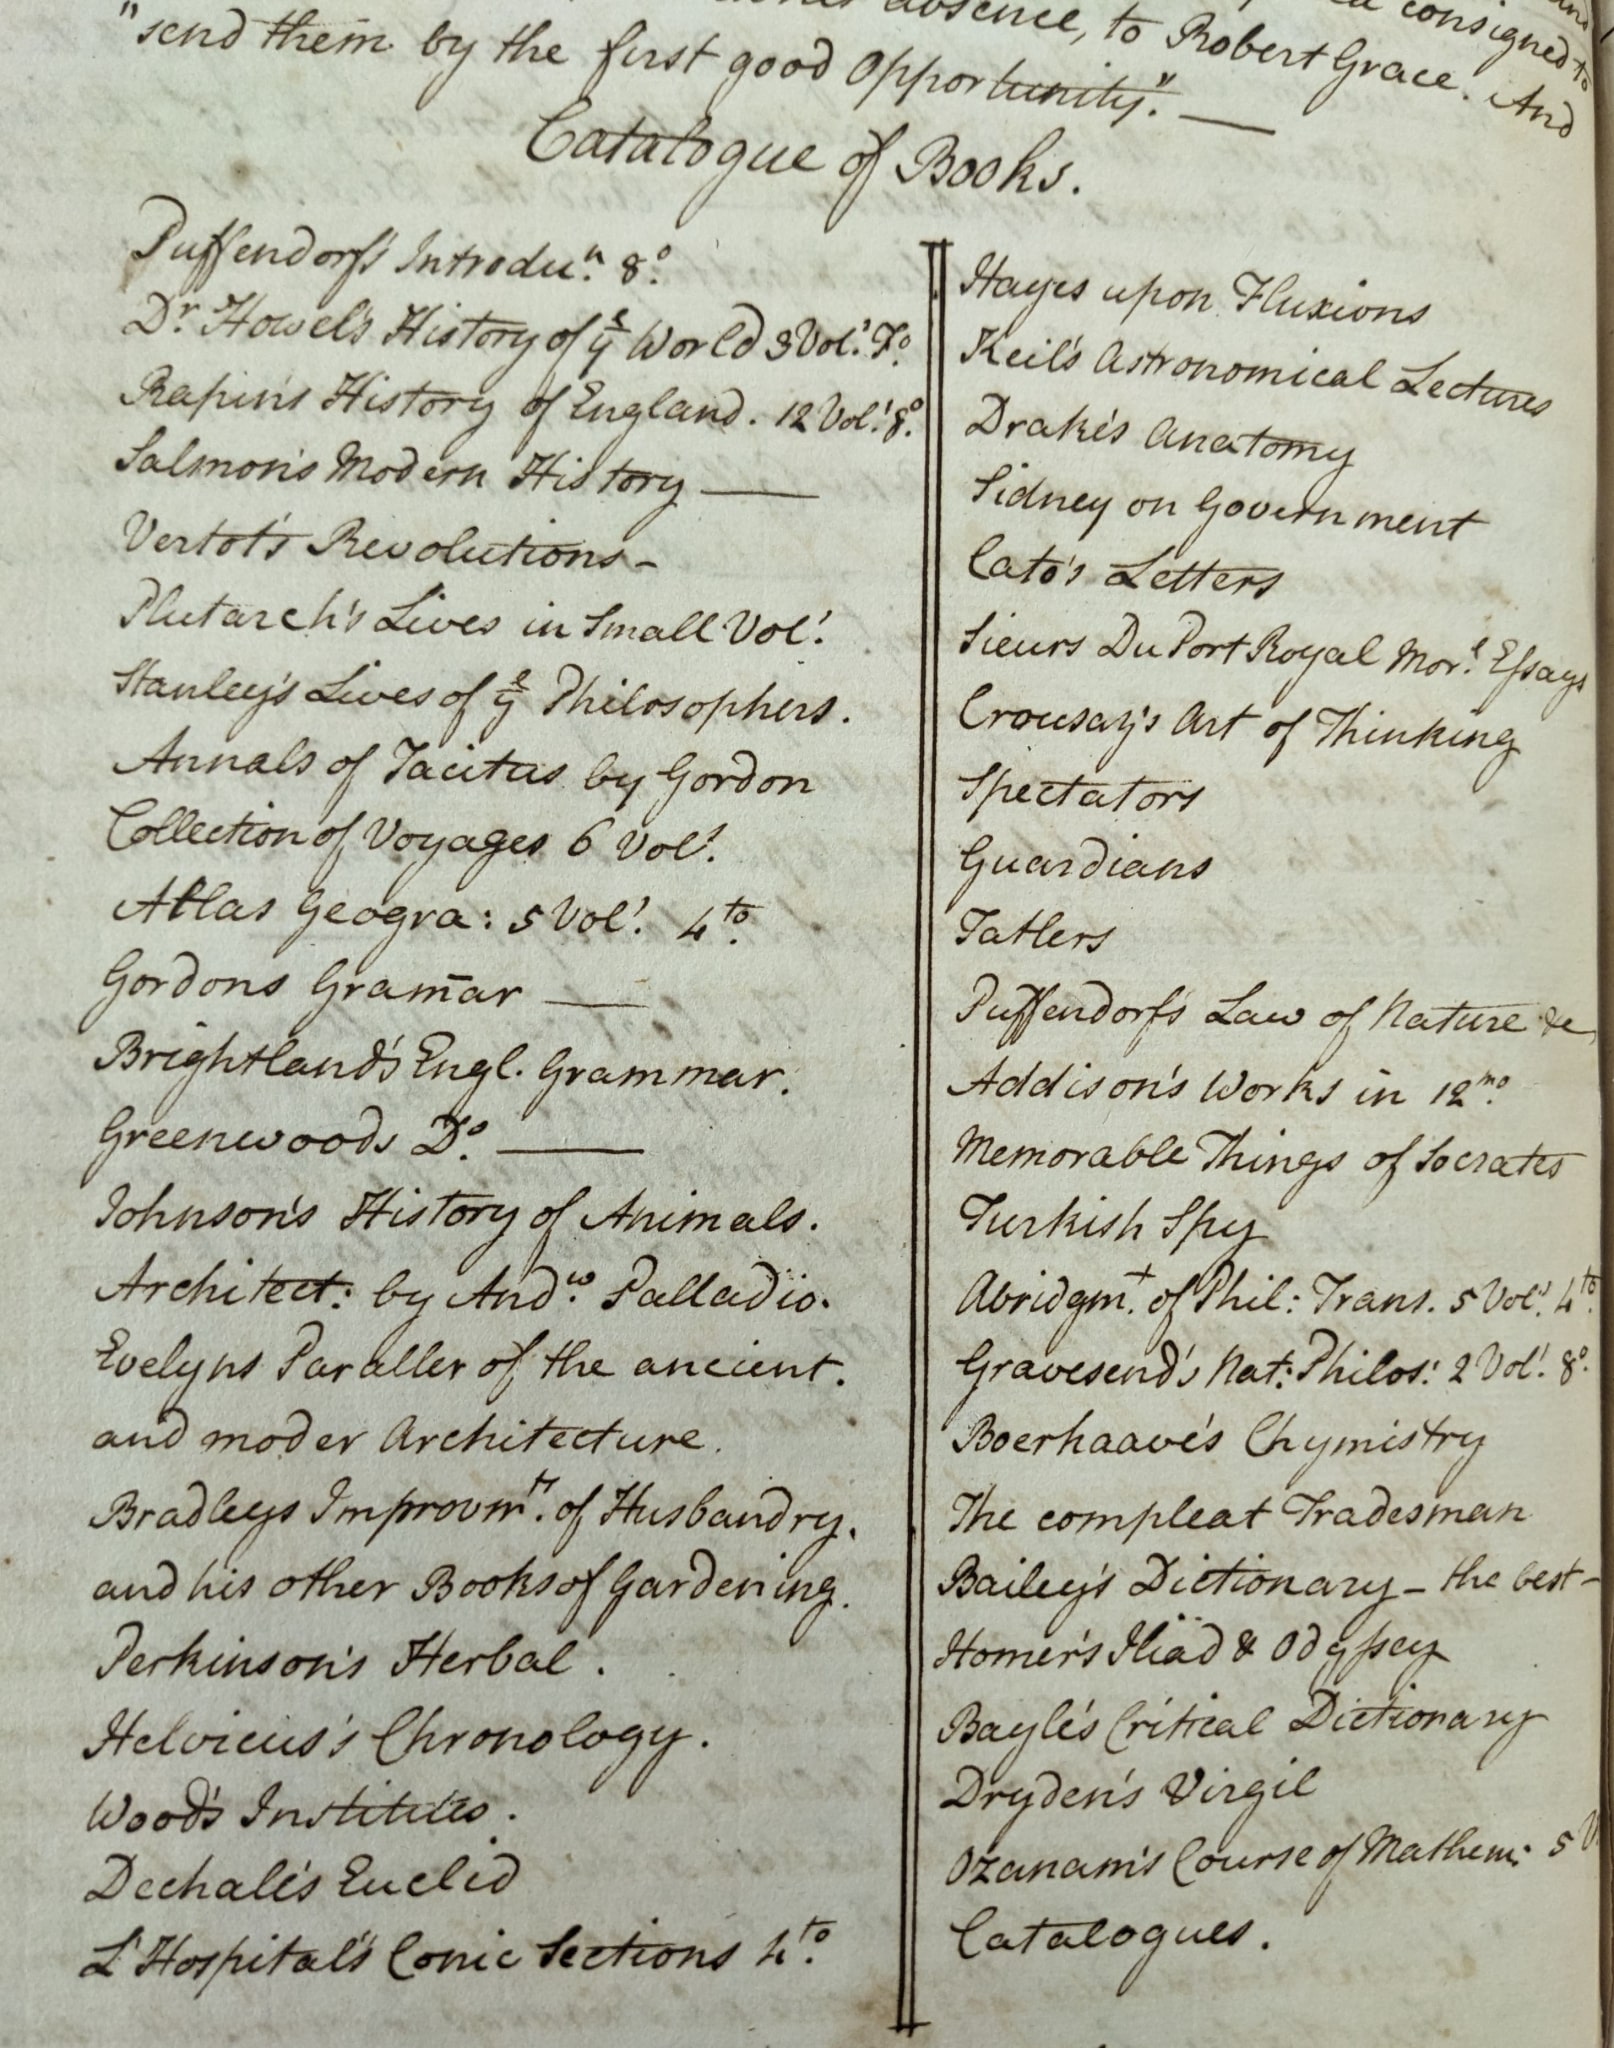 absence, to Robert Grace. And
consigned to
"send them by the first good Opportunity". —
Catalogue of Books.
Puffendorf's Introdu.n 8.o
Dr. Howel's History of ye World 3 Vol.s Fo.
Rapin's History of England. 12 Vol.s 8.o
Salmon's Modern History —
Vertot's Revolutions -
Plutarch's Lives in Small Vol.s
Stanley's Lives of ye Philosophers.
Annals of Tacitus by Gordon
Collection of Voyages 6 Vol.s
Atlas Geogra: 5 Vol.s 4.to
Gordons Gram̄ar —
Brightland's Engl. Grammar.
Greenwoods Do. —
Johnson's History of Animals.
Architect: by And.w Palladio.
Evelyns Paraller of the ancient.
and moder Architecture.
Bradleys Improvm.t of Husbandry.
and his other Books of Gardening.
Perkinson's Herbal.
Helvicus's Chronology.
Wood's Institutes.
Dechale's Euclid
L'Hospital's Conic Sections 4.to
Hayes upon Fluxions
Keil's Astronomical Lectures
Drake's Anatomy
Sidney on Government
Cato's Letters
Sieurs Du Port Royal Mor.l Essays
Crousaz's Art of Thinking
Spectators
Guardians
Tatlers
Puffendorf's Law of Nature &c
Addison's Works in 12.mo
Memorable Things of Socrates
Turkish Spy
Abridgm.t of Phil: Trans. 5 Vol.s 4.to
Gravesend's Nat: Philos: 2 Vol.s 8.o
Boerhaave's Chymistry
The compleat Tradesman
Bailey's Dictionary - the best -
Homer's Iliad & Odyssey
Bayle's Critical Dictionary
Dryden's Virgil
Ozanam's Course of Mathem: 5 V
Catalogues.